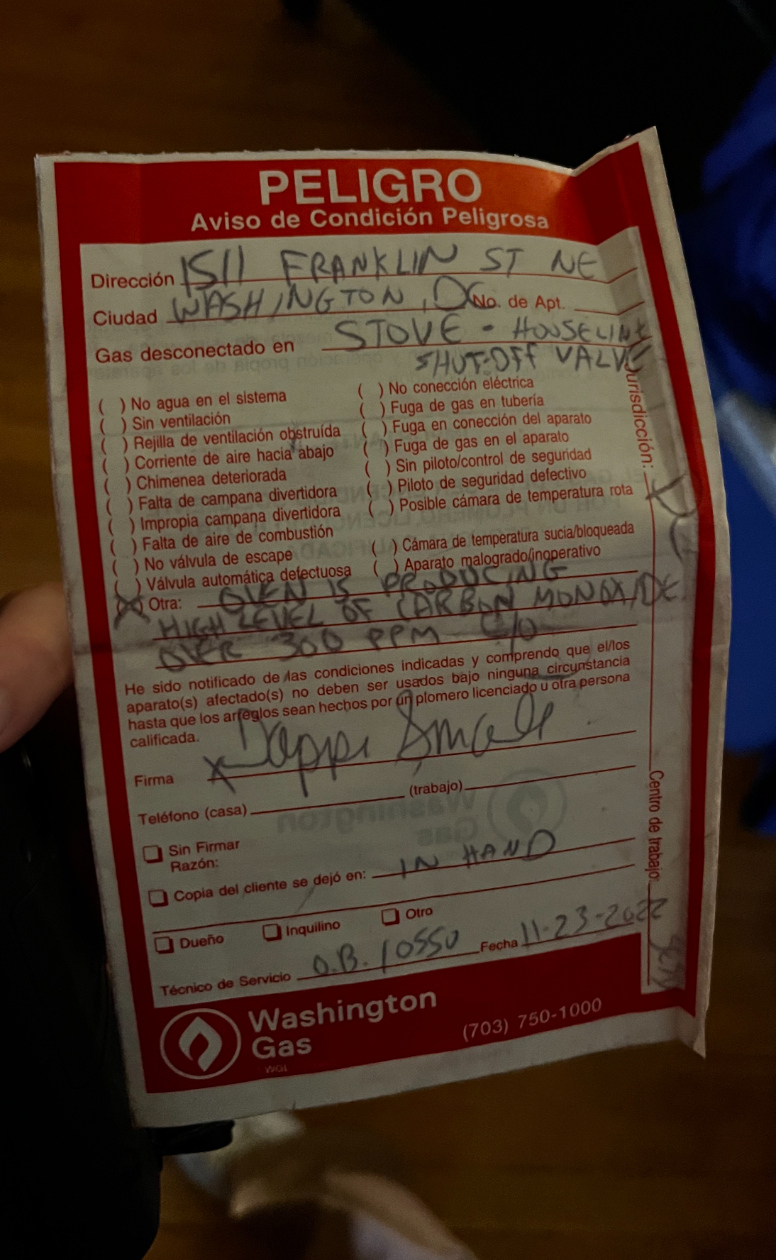 PELIGRO
Aviso de Condición Peligrosa
Dirección 1511 FRANKLIN ST NE
Ciudad WASHINGTON, DC No. de Apt.
Gas desconectado en STOVE - HOUSELINE
SHUT-OFF VALVE
( ) No agua en el sistema
( ) Sin ventilación
( ) Rejilla de ventilación obstruída
( ) Corriente de aire hacia abajo
( ) Chimenea deteriorada
( ) Falta de campana divertidora
( ) Impropia campana divertidora
( ) Falta de aire de combustión
( ) No válvula de escape
( ) Válvula automática defectuosa
( ) No conección eléctrica
( ) Fuga de gas en tubería
( ) Fuga en conección del aparato
( ) Fuga de gas en el aparato
( ) Sin piloto/control de seguridad
( ) Piloto de seguridad defectivo
( ) Posible cámara de temperatura rota
( ) Cámara de temperatura sucia/bloqueada
( ) Aparato malogrado/inoperativo
(X) Otra: OVEN IS PRODUCING
HIGH LEVEL OF CARBON MONOXIDE
OVER 300 PPM
He sido notificado de las condiciones indicadas y comprendo que el/los
aparato(s) afectado(s) no deben ser usados bajo ninguna circunstancia
hasta que los arreglos sean hechos por un plomero licenciado u otra persona
calificada.
Firma X
Teléfono (casa) (trabajo)
Sin Firmar
Razón:
Copia del cliente se dejó en: IN HAND
Dueño Inquilino Otro
Técnico de Servicio O.B. Fecha 11-23-2022
Jurisdicción:
Centro de trabajo:
Washington
Gas
(703) 750-1000
WGL